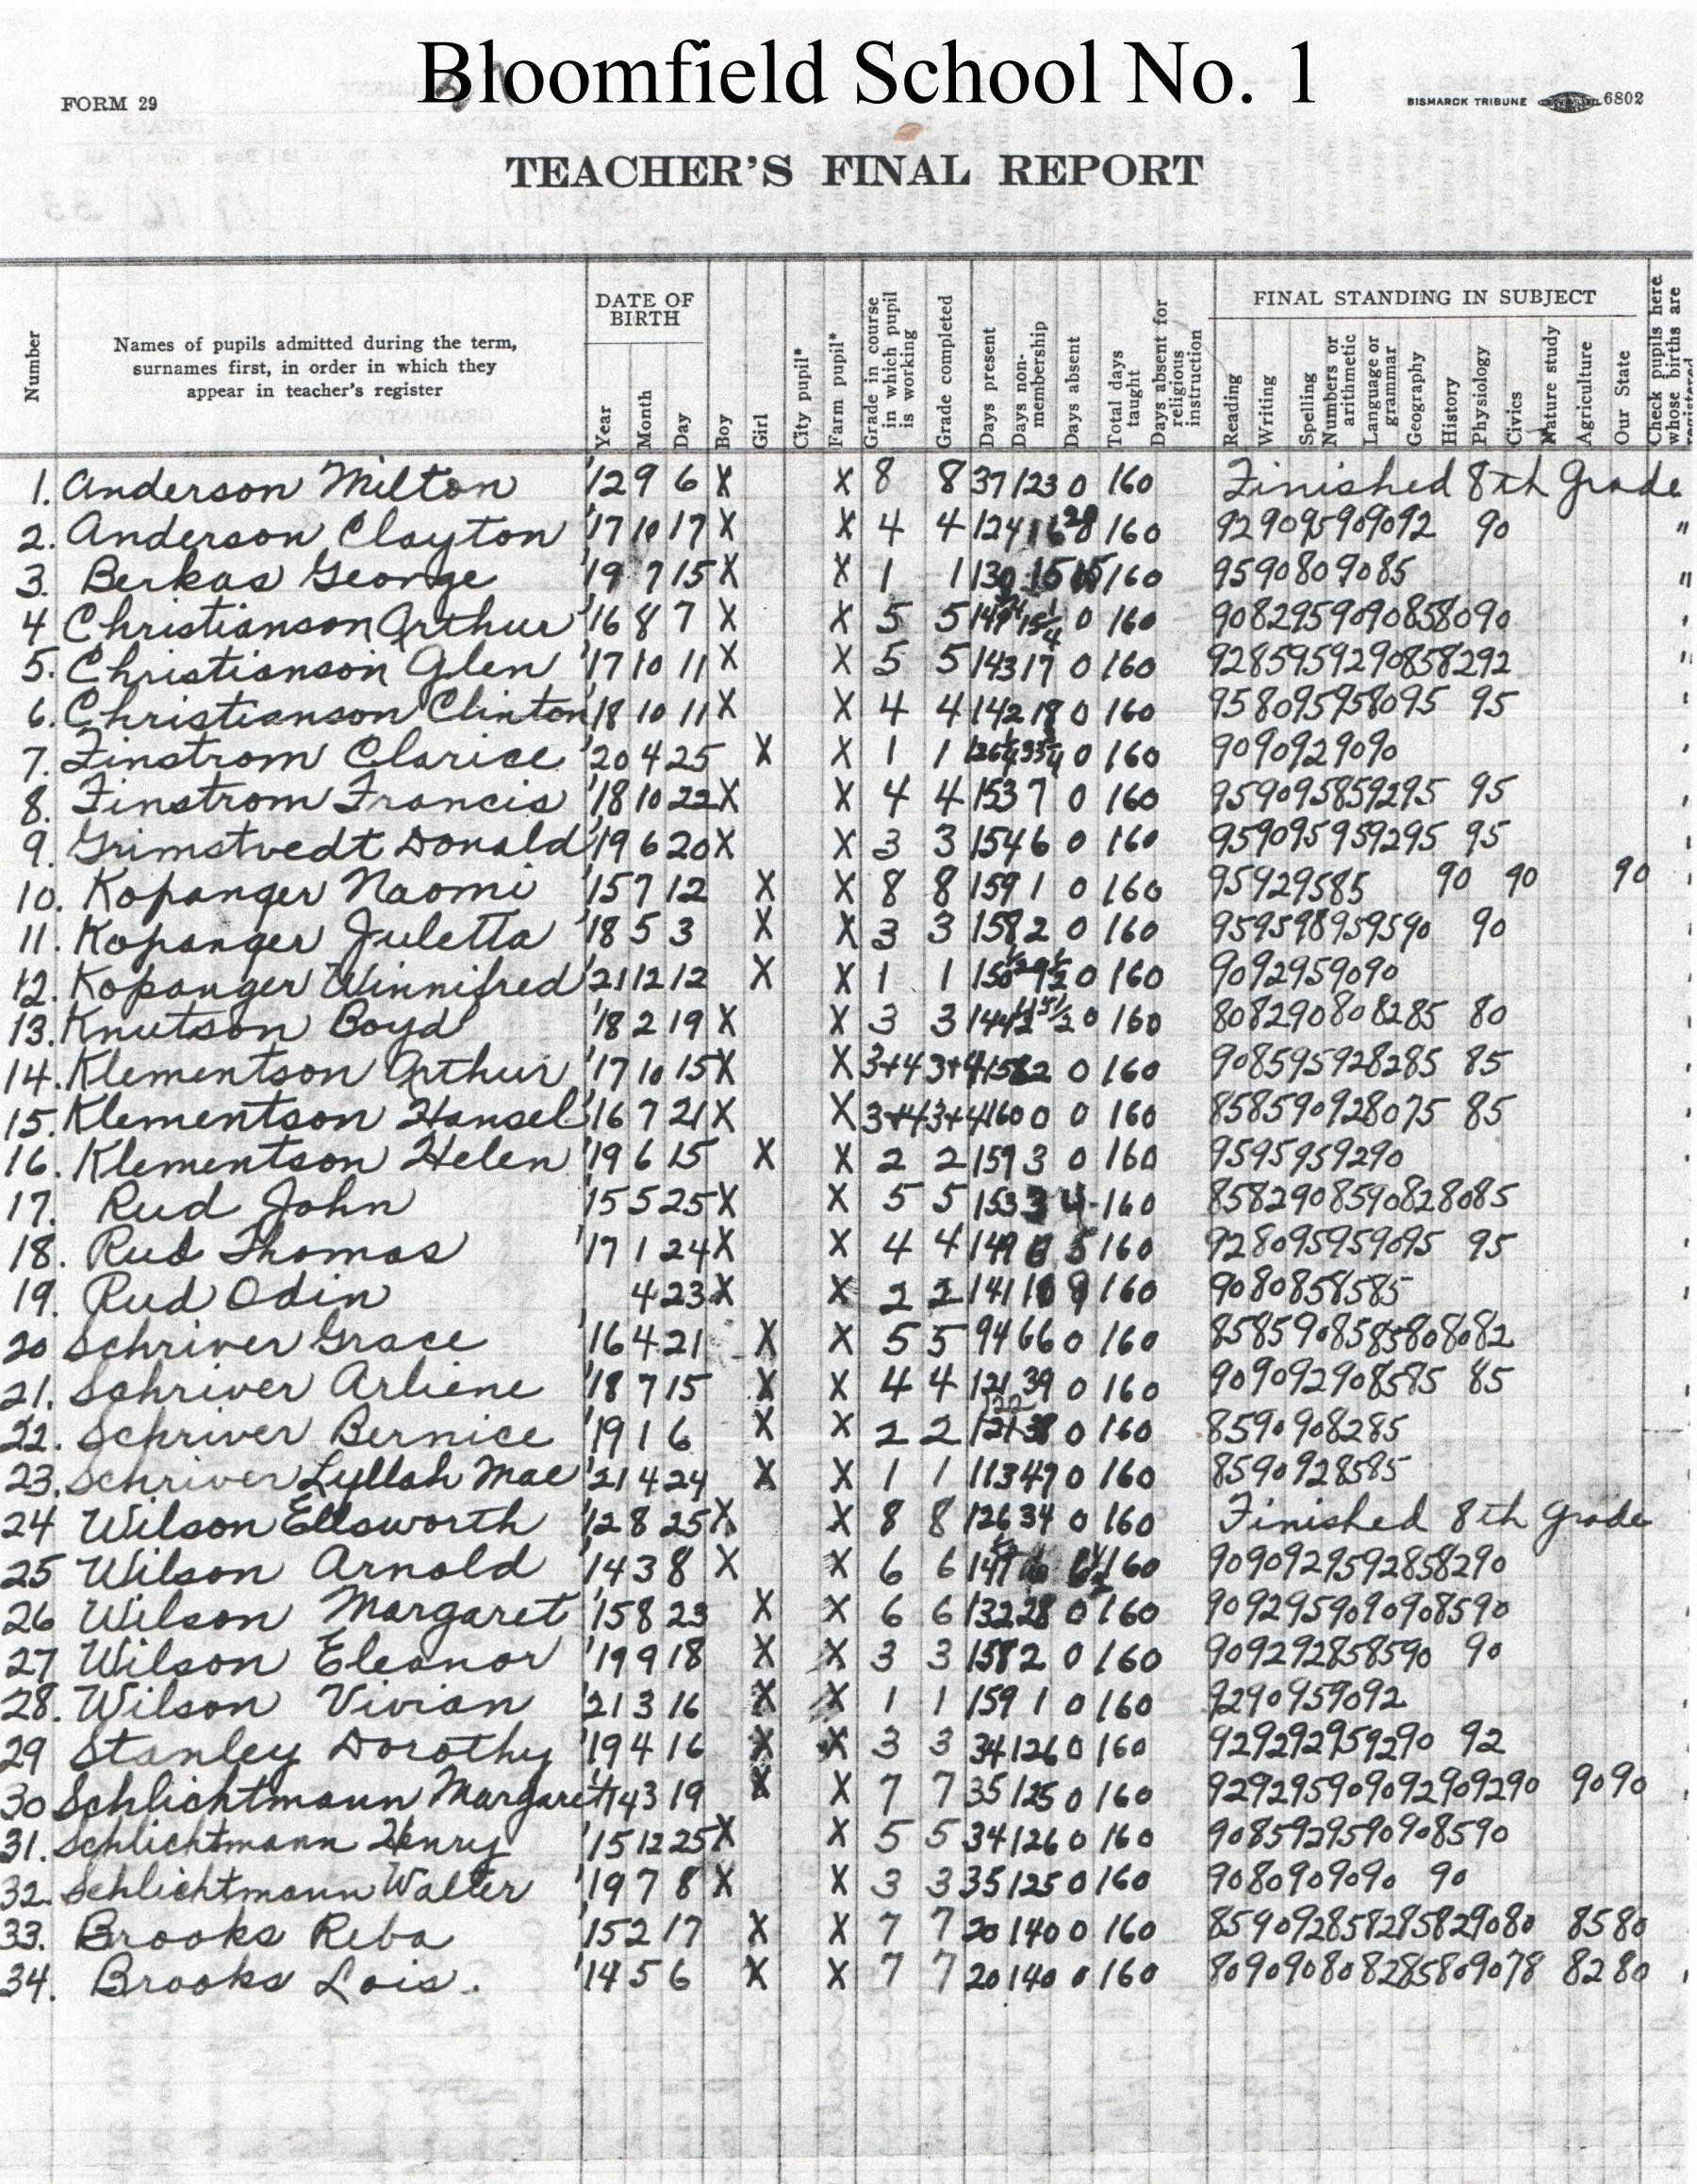 Bloomfield School No. 1
FORM 29
BISMARCK TRIBUNE 6802
TEACHER'S FINAL REPORT
Number
Names of pupils admitted during the term, surnames first, in order in which they appear in teacher's register
DATE OF BIRTH
Year Month Day
Boy
Girl
City pupil*
Farm pupil*
Grade in course in which pupil is working
Grade completed
Days present
Days non-membership
Days absent
Total days taught
Days absent for religious instruction
FINAL STANDING IN SUBJECT
Reading
Writing
Spelling
Numbers or arithmetic
Language or grammar
Geography
History
Physiology
Civics
Nature study
Agriculture
Our State
Check pupils here whose births are registered
1. Anderson Milton '12 9 6 X X 8 8 37 123 0 160 Finished 8th Grade
2. Anderson Clayton '17 10 17 X X 4 4 124 16 20 160 92 90 95 90 90 92 90 "
3. Berkas George '19 7 15 X X 1 1 130 15 15 160 95 90 80 90 85 "
4 Christianson Arthur '16 8 7 X X 5 5 0 160 90 82 95 90 90 85 80 90
5. Christianson Glen '17 10 11 X X 5 5 143 17 0 160 92 85 95 92 90 85 82 92 "
6. Christianson Clinton '18 10 11 X X 4 4 142 18 0 160 95 80 95 95 80 95 95
7. Finstrom Clarice '20 4 25 X X 1 1 126 1/4 33 3/4 0 160 90 90 92 90 90
8. Finstrom Francis '18 10 22 X X 4 4 153 7 0 160 95 90 95 85 92 95 95
9. Grimstvedt Donald '19 6 20 X X 3 3 154 6 0 160 95 90 95 95 92 95 95
10. Kopanger Naomi '15 7 12 X X 8 8 159 1 0 160 95 92 95 85 90 90 90
11. Kopanger Juletta '18 5 3 X X 3 3 158 2 0 160 95 95 98 95 95 90 90
12. Kopanger Winnifred '21 12 12 X X 1 1 150 1/2 9 1/2 0 160 90 92 95 90 90
13. Knutson Boyd '18 2 19 X X 3 3 0 160 80 82 90 80 82 85 80
14. Klementson Arthur '17 10 15 X X 3+4 3+4 158 2 0 160 90 85 95 92 82 85 85
15. Klementson Hansel '16 7 21 X X 3+4 3+4 160 0 0 160 85 85 90 92 80 75 85
16. Klementson Helen '19 6 15 X X 2 2 159 3 0 160 95 95 95 92 90
17. Rud John '15 5 25 X X 5 5 153 3 4 160 85 82 90 85 90 82 80 85
18. Rud Thomas '17 1 24 X X 4 4 149 6 5 160 92 80 95 95 90 95 95
19. Rud Odin 4 23 X X 2 2 141 10 9 160 90 80 85 85 85
20 Schriver Grace '16 4 21 X X 5 5 94 66 0 160 85 85 90 85 85 80 80 82
21. Schriver Arliene '18 7 15 X X 4 4 121 39 0 160 90 90 92 90 85 85 85
22. Schriver Bernice '19 1 6 X X 2 2 122 38 0 160 85 90 90 82 85
23. Schriver Lyllah Mae '21 4 24 X X 1 1 113 47 0 160 85 90 92 85 85
24 Wilson Ellsworth '12 8 25 X X 8 8 126 34 0 160 Finished 8th Grade
25 Wilson Arnold '14 3 8 X X 6 6 160 90 90 92 95 92 85 82 90
26 Wilson Margaret '15 8 23 X X 6 6 132 28 0 160 90 92 95 90 90 90 85 90
27 Wilson Eleanor '19 9 18 X X 3 3 158 2 0 160 90 92 92 85 85 90 90
28. Wilson Vivian '21 3 16 X X 1 1 159 1 0 160 92 90 95 90 92
29 Stanley Dorothy '19 4 16 X X 3 3 34 126 0 160 92 92 92 95 92 90 92
30 Schlichtmann Margaret '14 3 19 X X 7 7 35 125 0 160 92 92 95 90 90 92 90 92 90 90 90
31. Schlichtmann Henry '15 12 25 X X 5 5 34 126 0 160 90 85 92 95 90 90 85 90
32. Schlichtmann Walter '19 7 8 X X 3 3 35 125 0 160 90 80 90 90 90 90
33. Brooks Reba '15 2 17 X X 7 7 20 140 0 160 85 90 92 85 82 85 82 90 80 85 80
34. Brooks Lois. '14 5 6 X X 7 7 20 140 0 160 80 90 90 80 82 85 80 90 78 82 80